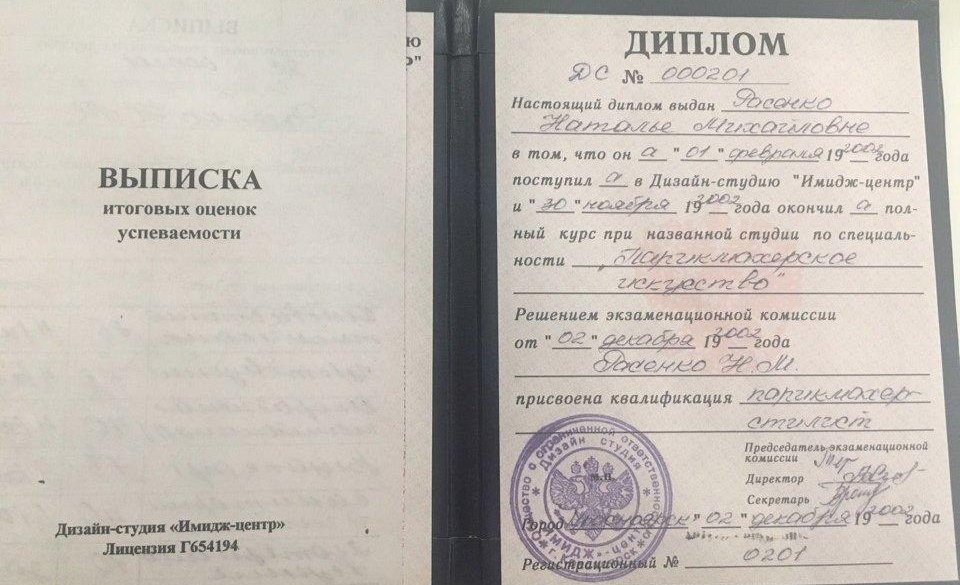 ВЫПИСКА
итоговых оценок
успеваемости
Дизайн-студия «Имидж-центр»
Лицензия Г654194
Ю
Ь"
ДИПЛОМ
ДС № 000201
Настоящий диплом выдан Расенко
Наталье Михайловне
в том, что он а "01" февраля 19 2002 года
поступил а в Дизайн-студию "Имидж-центр"
и "30" ноября 19 2002 года окончил а пол-
ный курс при названной студии по специаль-
ности „Парикмахерское
искусство"
Решением экзаменационной комиссии
от "02" декабря 19 2002 года
Расенко Н.М.
присвоена квалификация парикмахер-
стилист
Председатель экзаменационной
комиссии
Директор
Секретарь
М.П.
Город "02" декабря 19 2002 года
Регистрационный № 0201
общество с ограниченной ответственностью
Дизайн студия
ИМИДЖ-центр